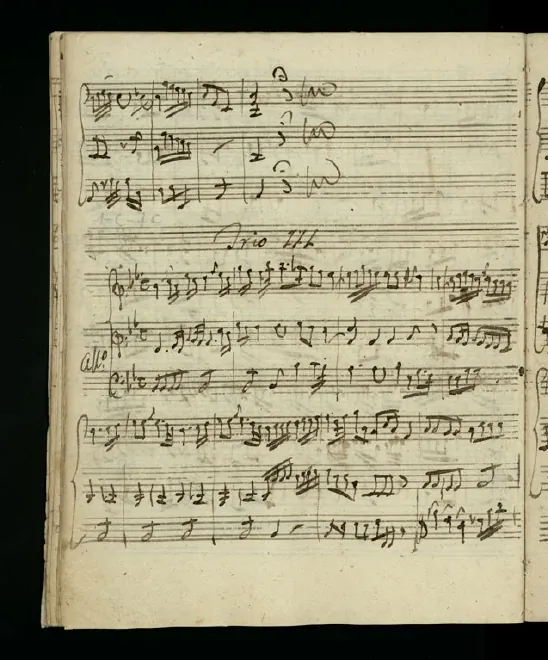 Trio III
All:o